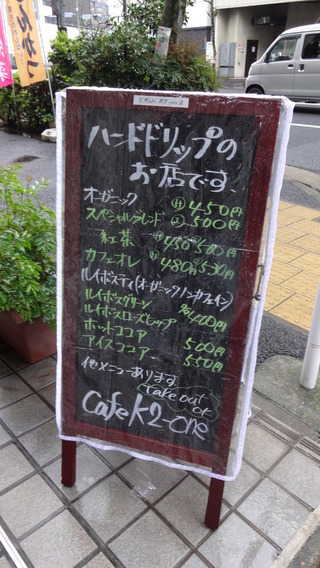 ハンドドリップの
お店です。
オーガニック
スペシャルブレンド
(H) 450円
(I) 500円
紅茶
カフェオレ
480 530円
ルイボスティ(オーガニックノンカフェイン)
ルイボスグリーン
ルイボスローズヒップ
400円
ホットココア 500円
アイスココア 550円
他メニューあります
Take out
ok
Cafe K2-one
とんかつ